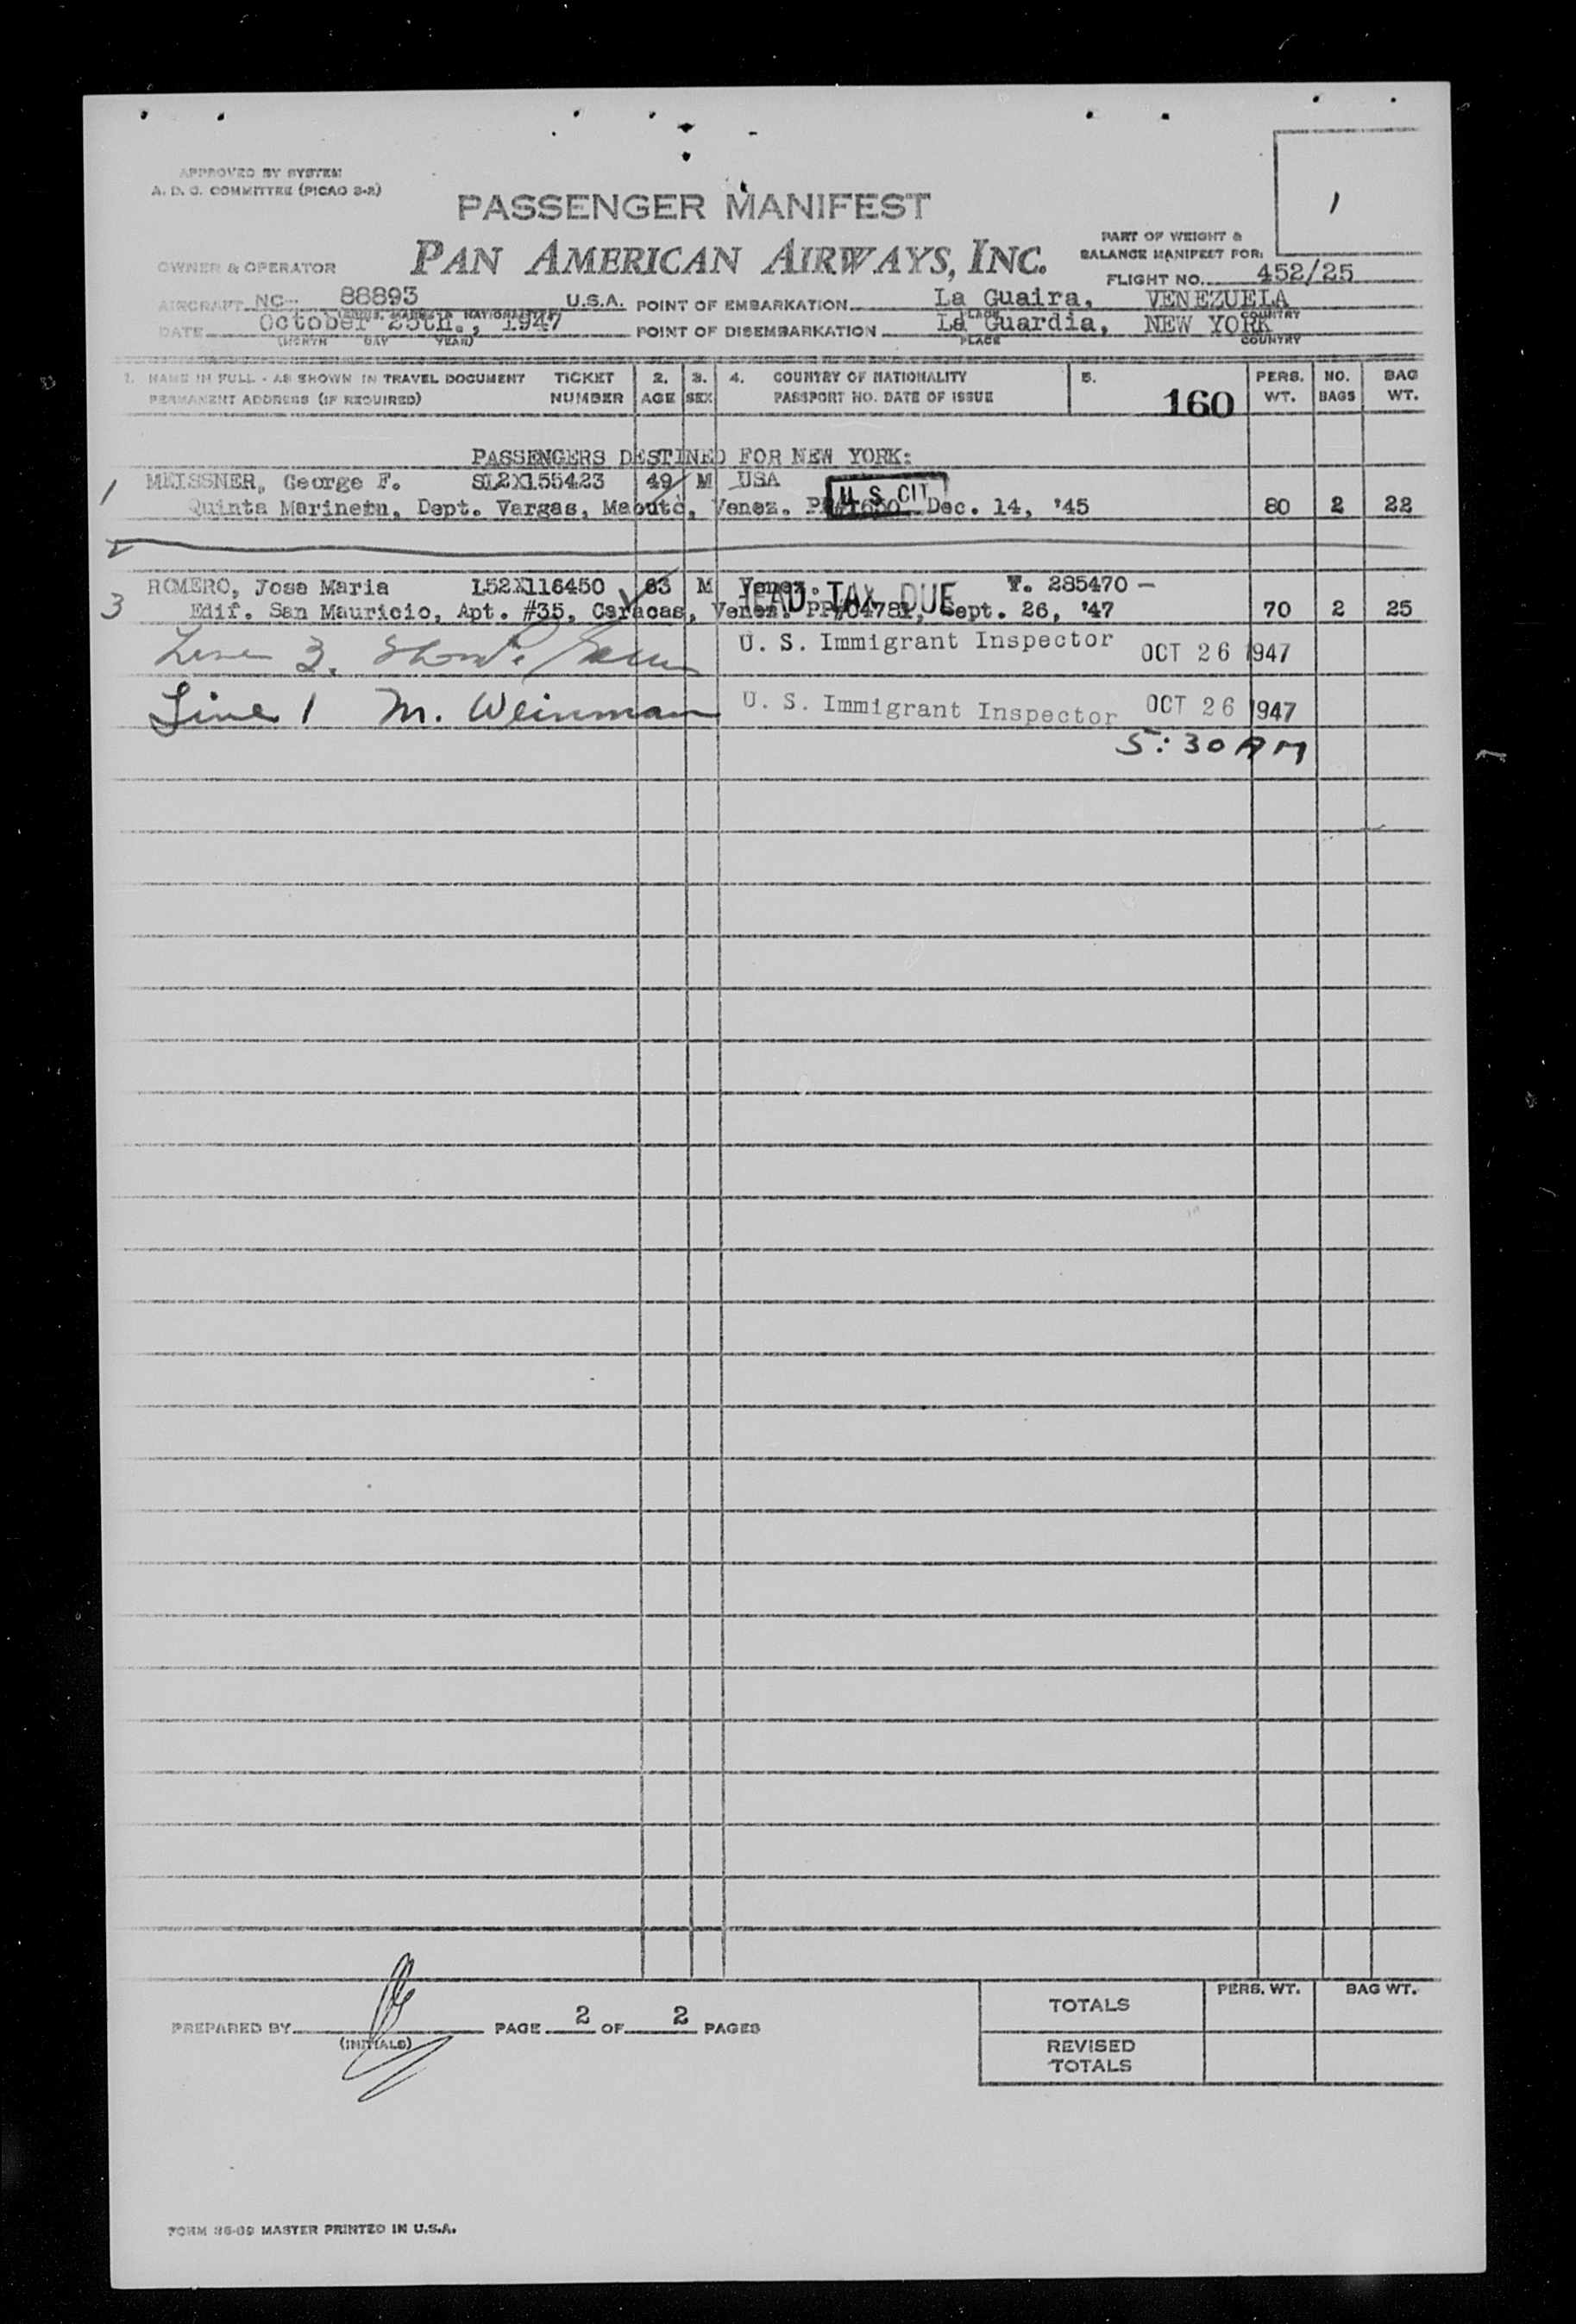 APPROVED BY SYSTEM
A. D. C. COMMITTEE (PICAO 3-2)
1
PASSENGER MANIFEST
PAN AMERICAN AIRWAYS, INC.
OWNER & OPERATOR
PART OF WEIGHT &
BALANCE MANIFEST FOR:
FLIGHT NO. 452/25
AIRCRAFT NC- 88893 U.S.A. POINT OF EMBARKATION La Guaira, VENEZUELA
PLACE COUNTRY
DATE October 25th., 1947 POINT OF DISEMBARKATION La Guardia, NEW YORK
(MONTH DAY YEAR) PLACE COUNTRY
1. NAME IN FULL - AS SHOWN IN TRAVEL DOCUMENT TICKET 2. 3. 4. COUNTRY OF NATIONALITY 5. PERS. NO. BAG
PERMANENT ADDRESS (IF REQUIRED) NUMBER AGE SEX PASSPORT NO. DATE OF ISSUE 160 WT. BAGS WT.
PASSENGERS DESTINED FOR NEW YORK:
1 MEISSNER, George F. SL2X155423 49 M USA U S CIT
Quinta Marinetn, Dept. Vargas, Macuto, Venez. Dec. 14, '45 80 2 22
2
ROMERO, Jose Maria L52X116450 63 M Venez. HEAD TAX DUE V. 285470 -
3 Edif. San Mauricio, Apt. #35, Caracas, Venez. PP#04781, Sept. 26, '47 70 2 25
Line 3. U. S. Immigrant Inspector OCT 26 1947
Line 1 M. Weinman U. S. Immigrant Inspector OCT 26 1947
5:30 AM
TOTALS PERS. WT. BAG WT.
PREPARED BY PAGE 2 OF 2 PAGES
(INITIALS)
REVISED
TOTALS
FORM 36-09 MASTER PRINTED IN U.S.A.